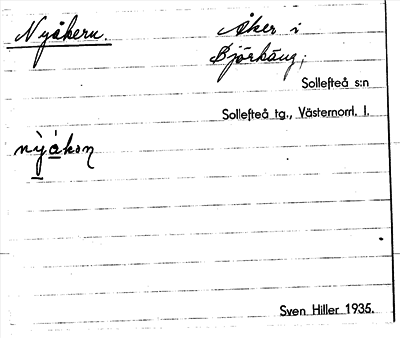 Nyåkern.
Åker i
Björkäng,
Sollefteå s:n
Sollefteå tg., Västernorrl. l.
nỳåkon
Sven Hiller 1935.